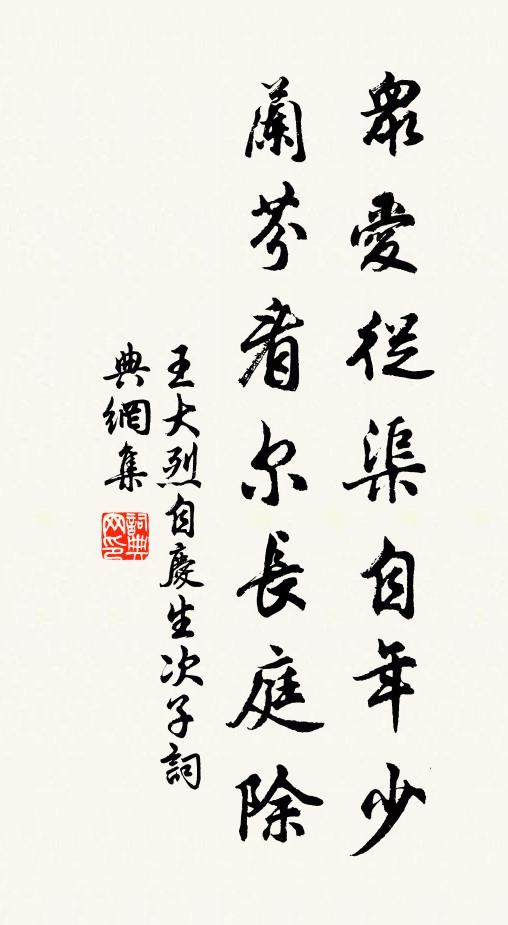 眾愛從渠自年少
蘭芬看尔長庭除
王大烈自慶生次子詞
典網集
詞典
网印